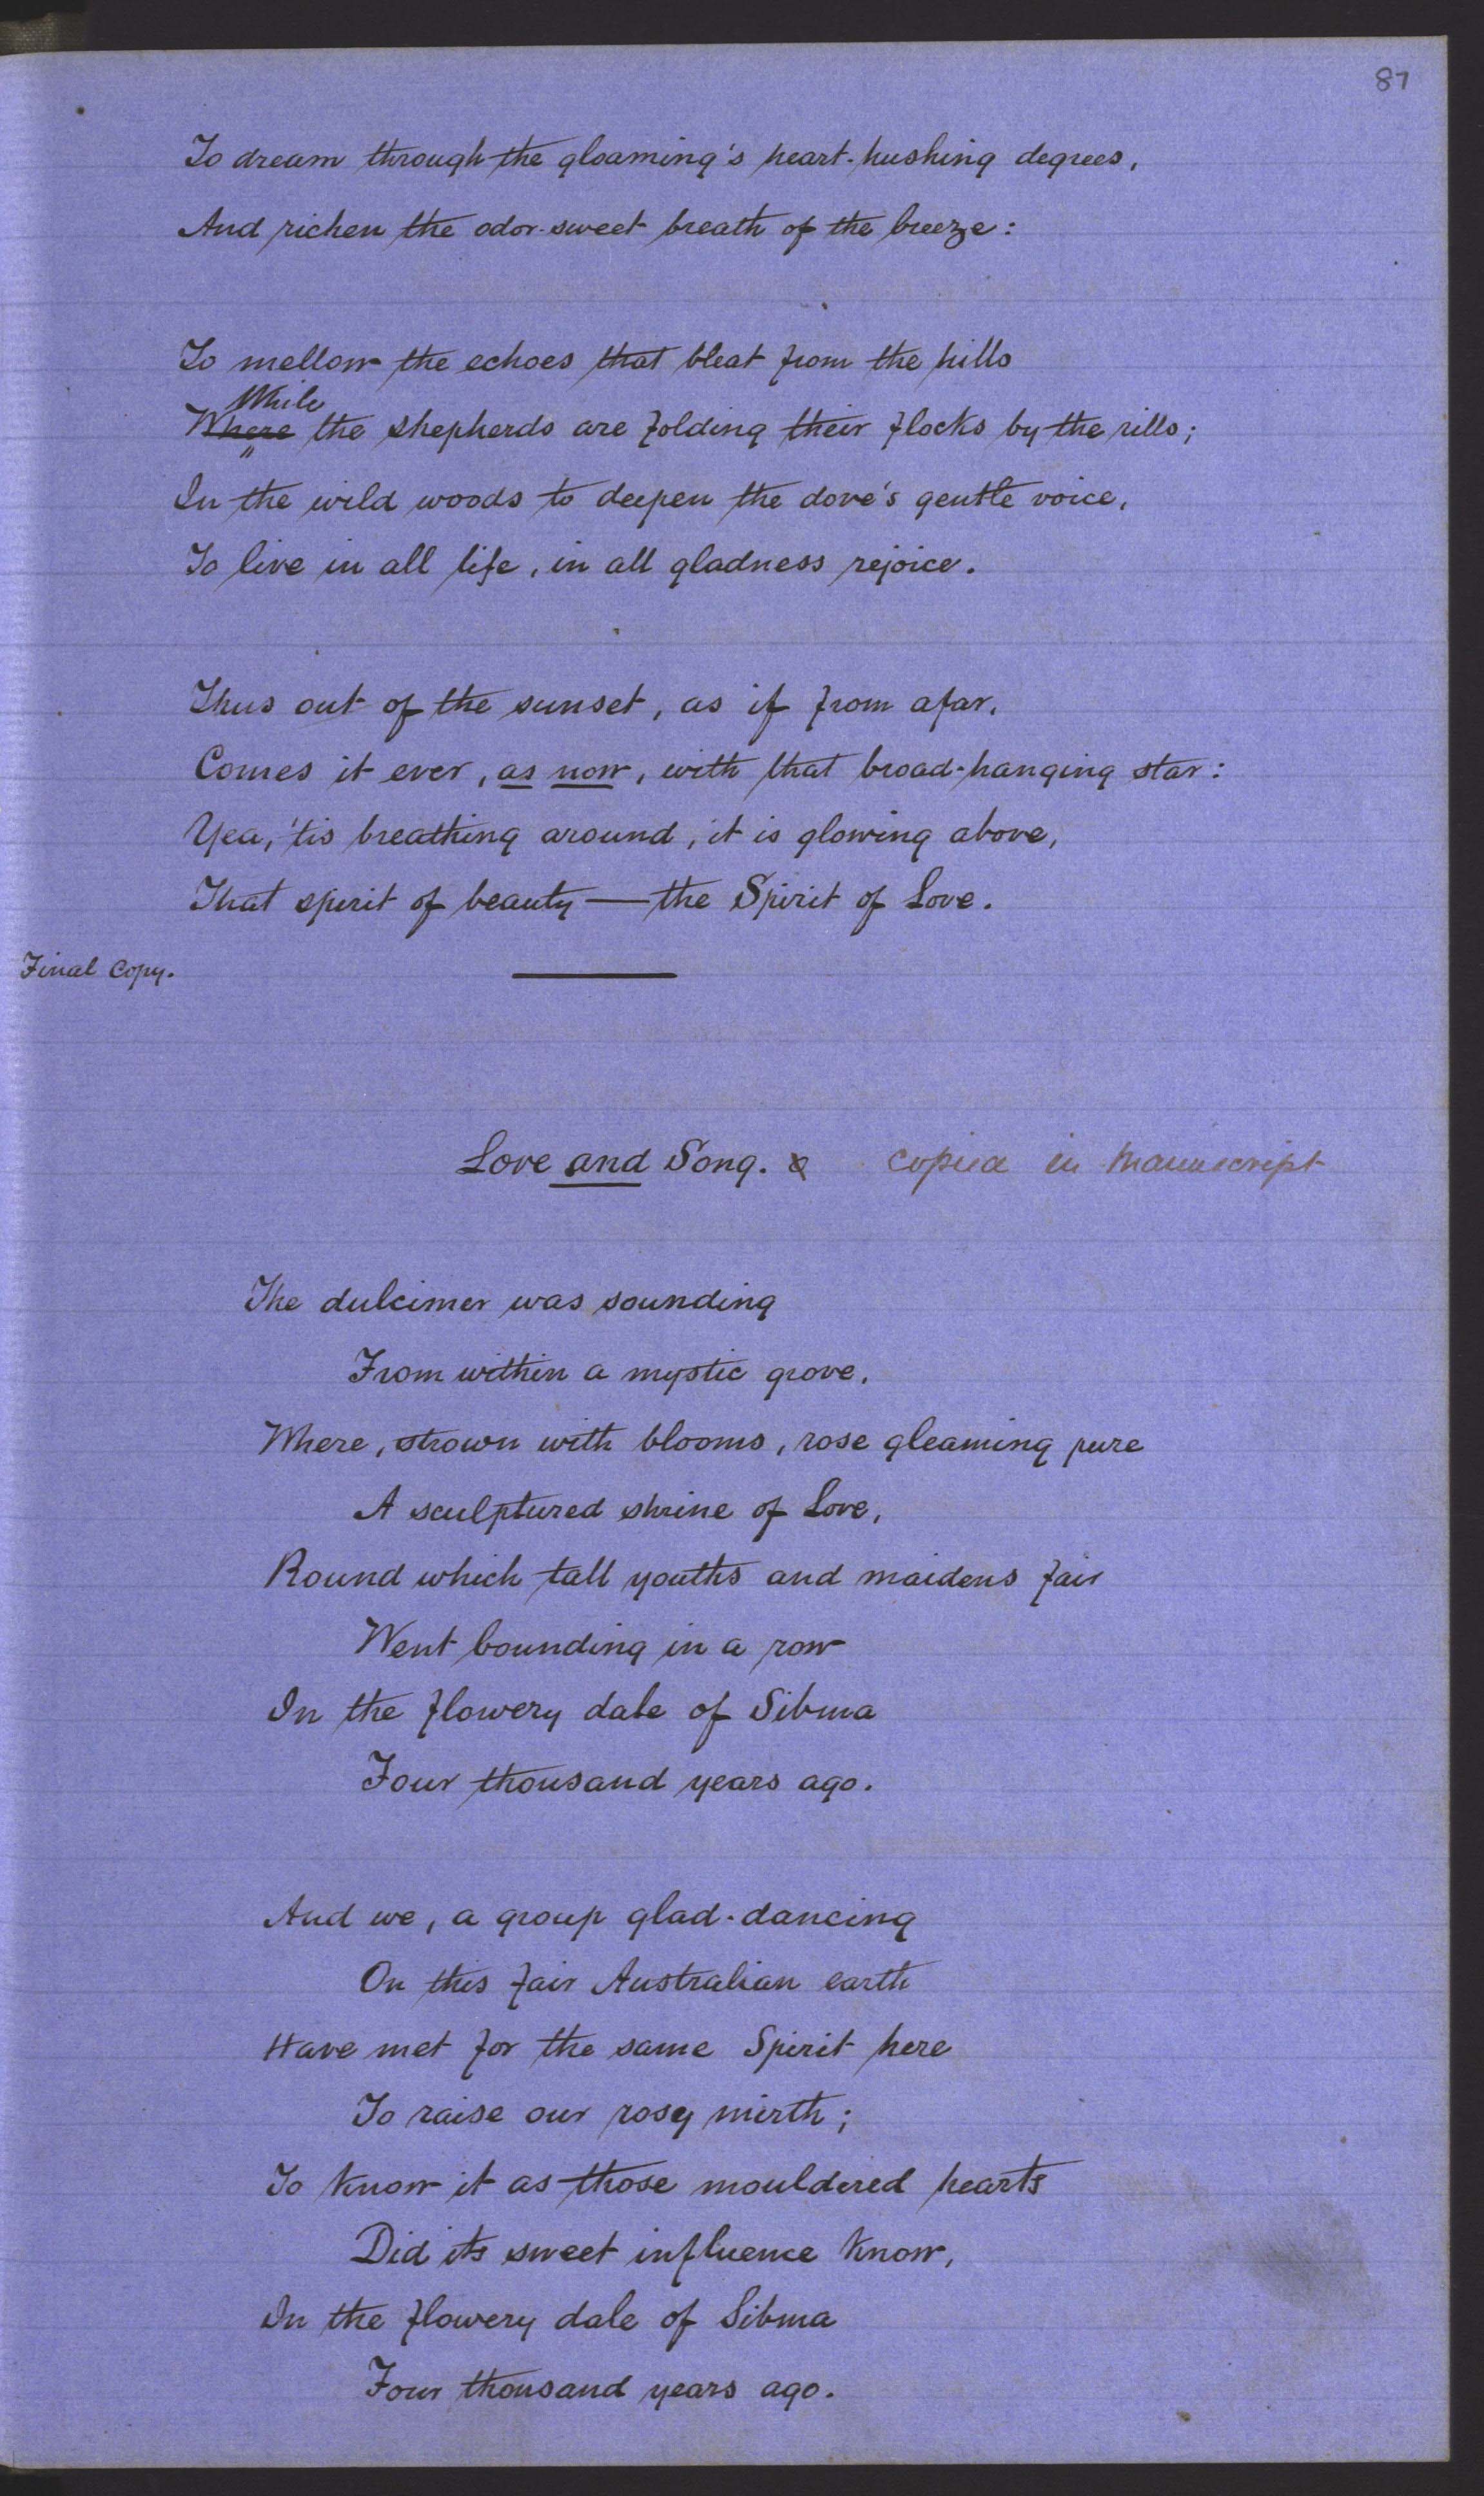 87
To dream through the gloaming's heart-hushing degrees,
And richen the odor-sweet breath of the breeze:
To mellow the echoes that bleat from the hills
While
Where the shepherds are folding their flocks by the rills;
In the wild woods to deepen the dove's gentle voice,
To live in all life, in all gladness rejoice.
Thus out of the sunset, as if from afar,
Comes it ever, as now, with that broad-hanging star:
Yea, 'tis breathing around, it is glowing above,
That spirit of beauty — the Spirit of Love.
Final Copy.
Love and Song. x copied in manuscript
The dulcimer was sounding
From within a mystic grove,
Where, strown with blooms, rose gleaming pure
A sculptured shrine of Love,
Round which tall youths and maidens fair
Went bounding in a row
In the flowery dale of Sibma
Four thousand years ago.
And we, a group glad-dancing
On this fair Australian earth
Have met for the same Spirit here
To raise our rosy mirth;
To know it as those mouldered hearts
Did its sweet influence know,
In the flowery dale of Sibma
Four thousand years ago.